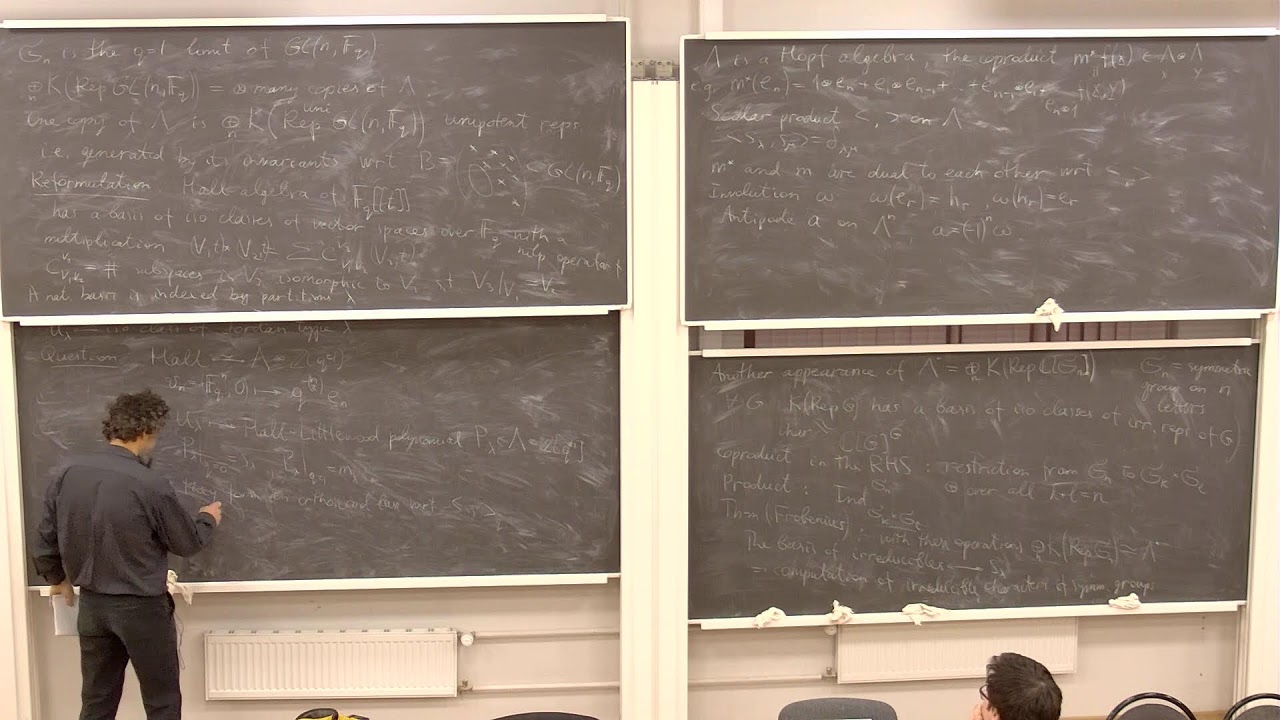 𝔖n is the q=1 limit of GL(n, 𝔽q)
⊕n K(Rep GL(n, 𝔽q)) = ⊗ many copies of Λ
One copy of Λ is ⊕n K(Rep^uni GL(n, 𝔽q)) unipotent reps
i.e. generated by its invariants wrt B = ⊂ GL(n, 𝔽q)
Reformulation Hall algebra of 𝔽q[[t]]
has a basis of iso classes of vector spaces over 𝔽q with a
nilp operator t
multiplication
# subspaces in V3 isomorphic to V1 s.t. V3/V1 = V2
A nat. basis is indexed by partitions λ
iso class of Jordan type λ
Question: Hall ≃ Λ ⊗
Hall-Littlewood polynomial Pλ ∈ Λ ⊗
Pλ|q=0 = sλ Pλ|q=1 = mλ
they form an orthogonal wrt
Λ is a Hopf algebra, the coproduct m* f(x) ∈ Λx ⊗ Λy
e.g. m*(en) = 1⊗en + e1⊗en-1 + ... + en-1⊗e1 + en⊗1
f(x,y)
Scalar product < , > on Λ
<sλ, sμ> = δλμ
m* and m are dual to each other wrt < , >
Involution ω ω(er) = hr, ω(hr) = er
Antipode a on Λ^n a = (-1)^n ω
Another appearance of Λ = ⊕n K(Rep ℂ[𝔖n]) 𝔖n = symmetric
group on n
letters
∀ G K(Rep G) has a basis of iso classes of irr. reps of G)
ℂ[G]^G
Coproduct in the RHS: restriction from 𝔖n to 𝔖k × 𝔖l
Product: Ind 𝔖n 𝔖k×𝔖l ⊕ over all k+l=n
Thm (Frobenius): with these operations ⊕n K(Rep 𝔖n) ≃ Λ
The basis of irreducibles → sλ
⇒ computation of irreducible characters of symm. groups